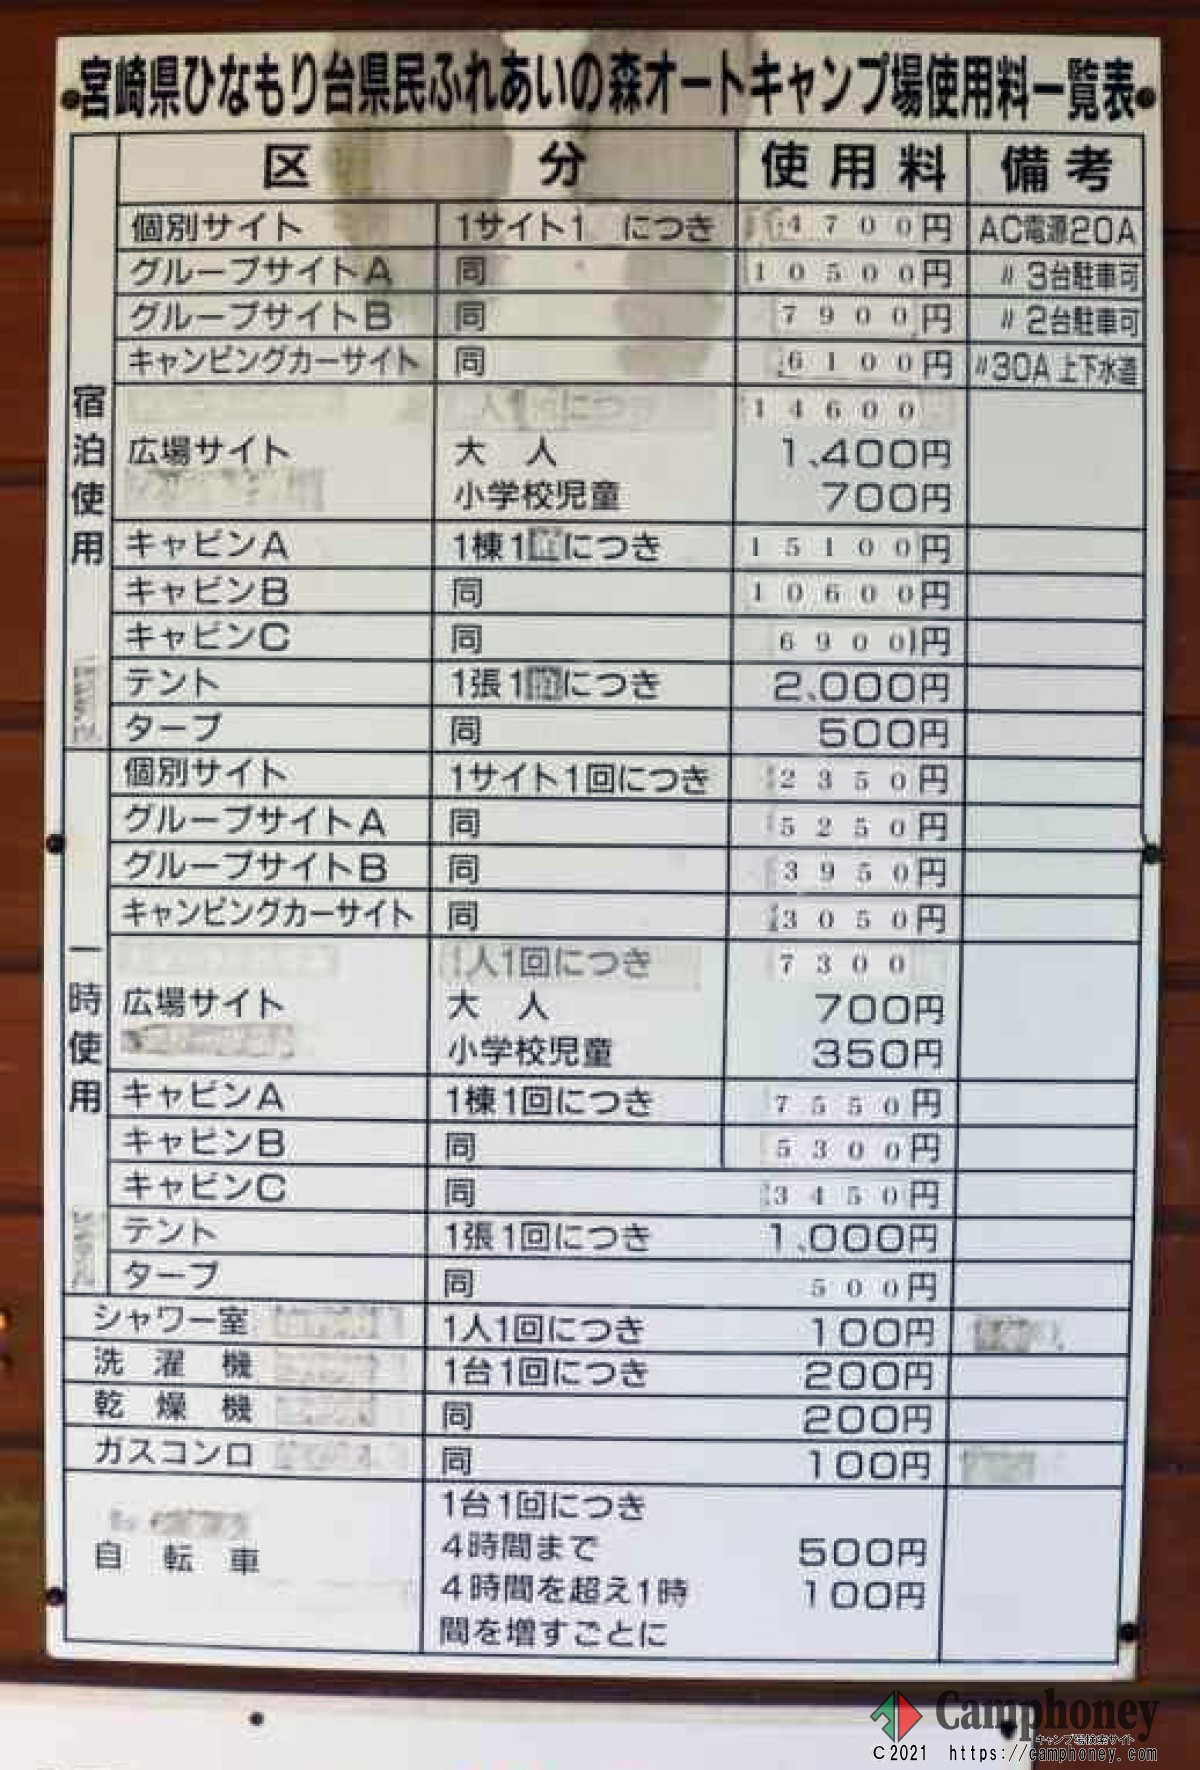 宮崎県ひなもり台県民ふれあいの森オートキャンプ場使用料一覧表
区 分 使用料 備考
宿泊使用
個別サイト 1サイト1 につき 4700円 AC電源20A
グループサイトA 同 10500円 〃 3台駐車可
グループサイトB 同 7900円 〃 2台駐車可
キャンピングカーサイト 同 6100円 〃30A上下水道
14600
広場サイト 大人 1,400円
小学校児童 700円
キャビンA 1棟1 につき 15100円
キャビンB 同 10600円
キャビンC 同 6900円
テント 1張1 につき 2,000円
タープ 同 500円
一時使用
個別サイト 1サイト1回につき 2350円
グループサイトA 同 5250円
グループサイトB 同 3950円
キャンピングカーサイト 同 3050円
1人1回につき 7300
広場サイト 大人 700円
小学校児童 350円
キャビンA 1棟1回につき 7550円
キャビンB 同 5300円
キャビンC 同 3450円
テント 1張1回につき 1,000円
タープ 同 500円
シャワー室 1人1回につき 100円
洗濯機 1台1回につき 200円
乾燥機 同 200円
ガスコンロ 同 100円
自転車 1台1回につき
4時間まで 500円
4時間を超え1時 100円
間を増すごとに
Camphoney
キャンプ場検索サイト
C2021 https://camphoney.com